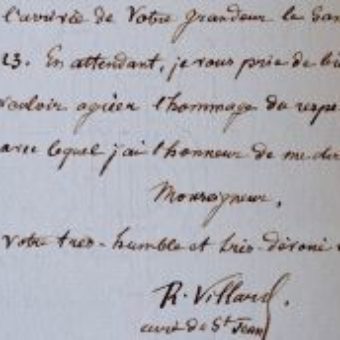 l'arrivée de Votre Grandeur le Sam
23. En attendant, je vous prie de bi
vouloir agréer l'hommage du respe
avec lequel j'ai l'honneur de me dir
Monseigneur,
Votre très-humble et très-dévoué
R. Villard.
curé de St Jean